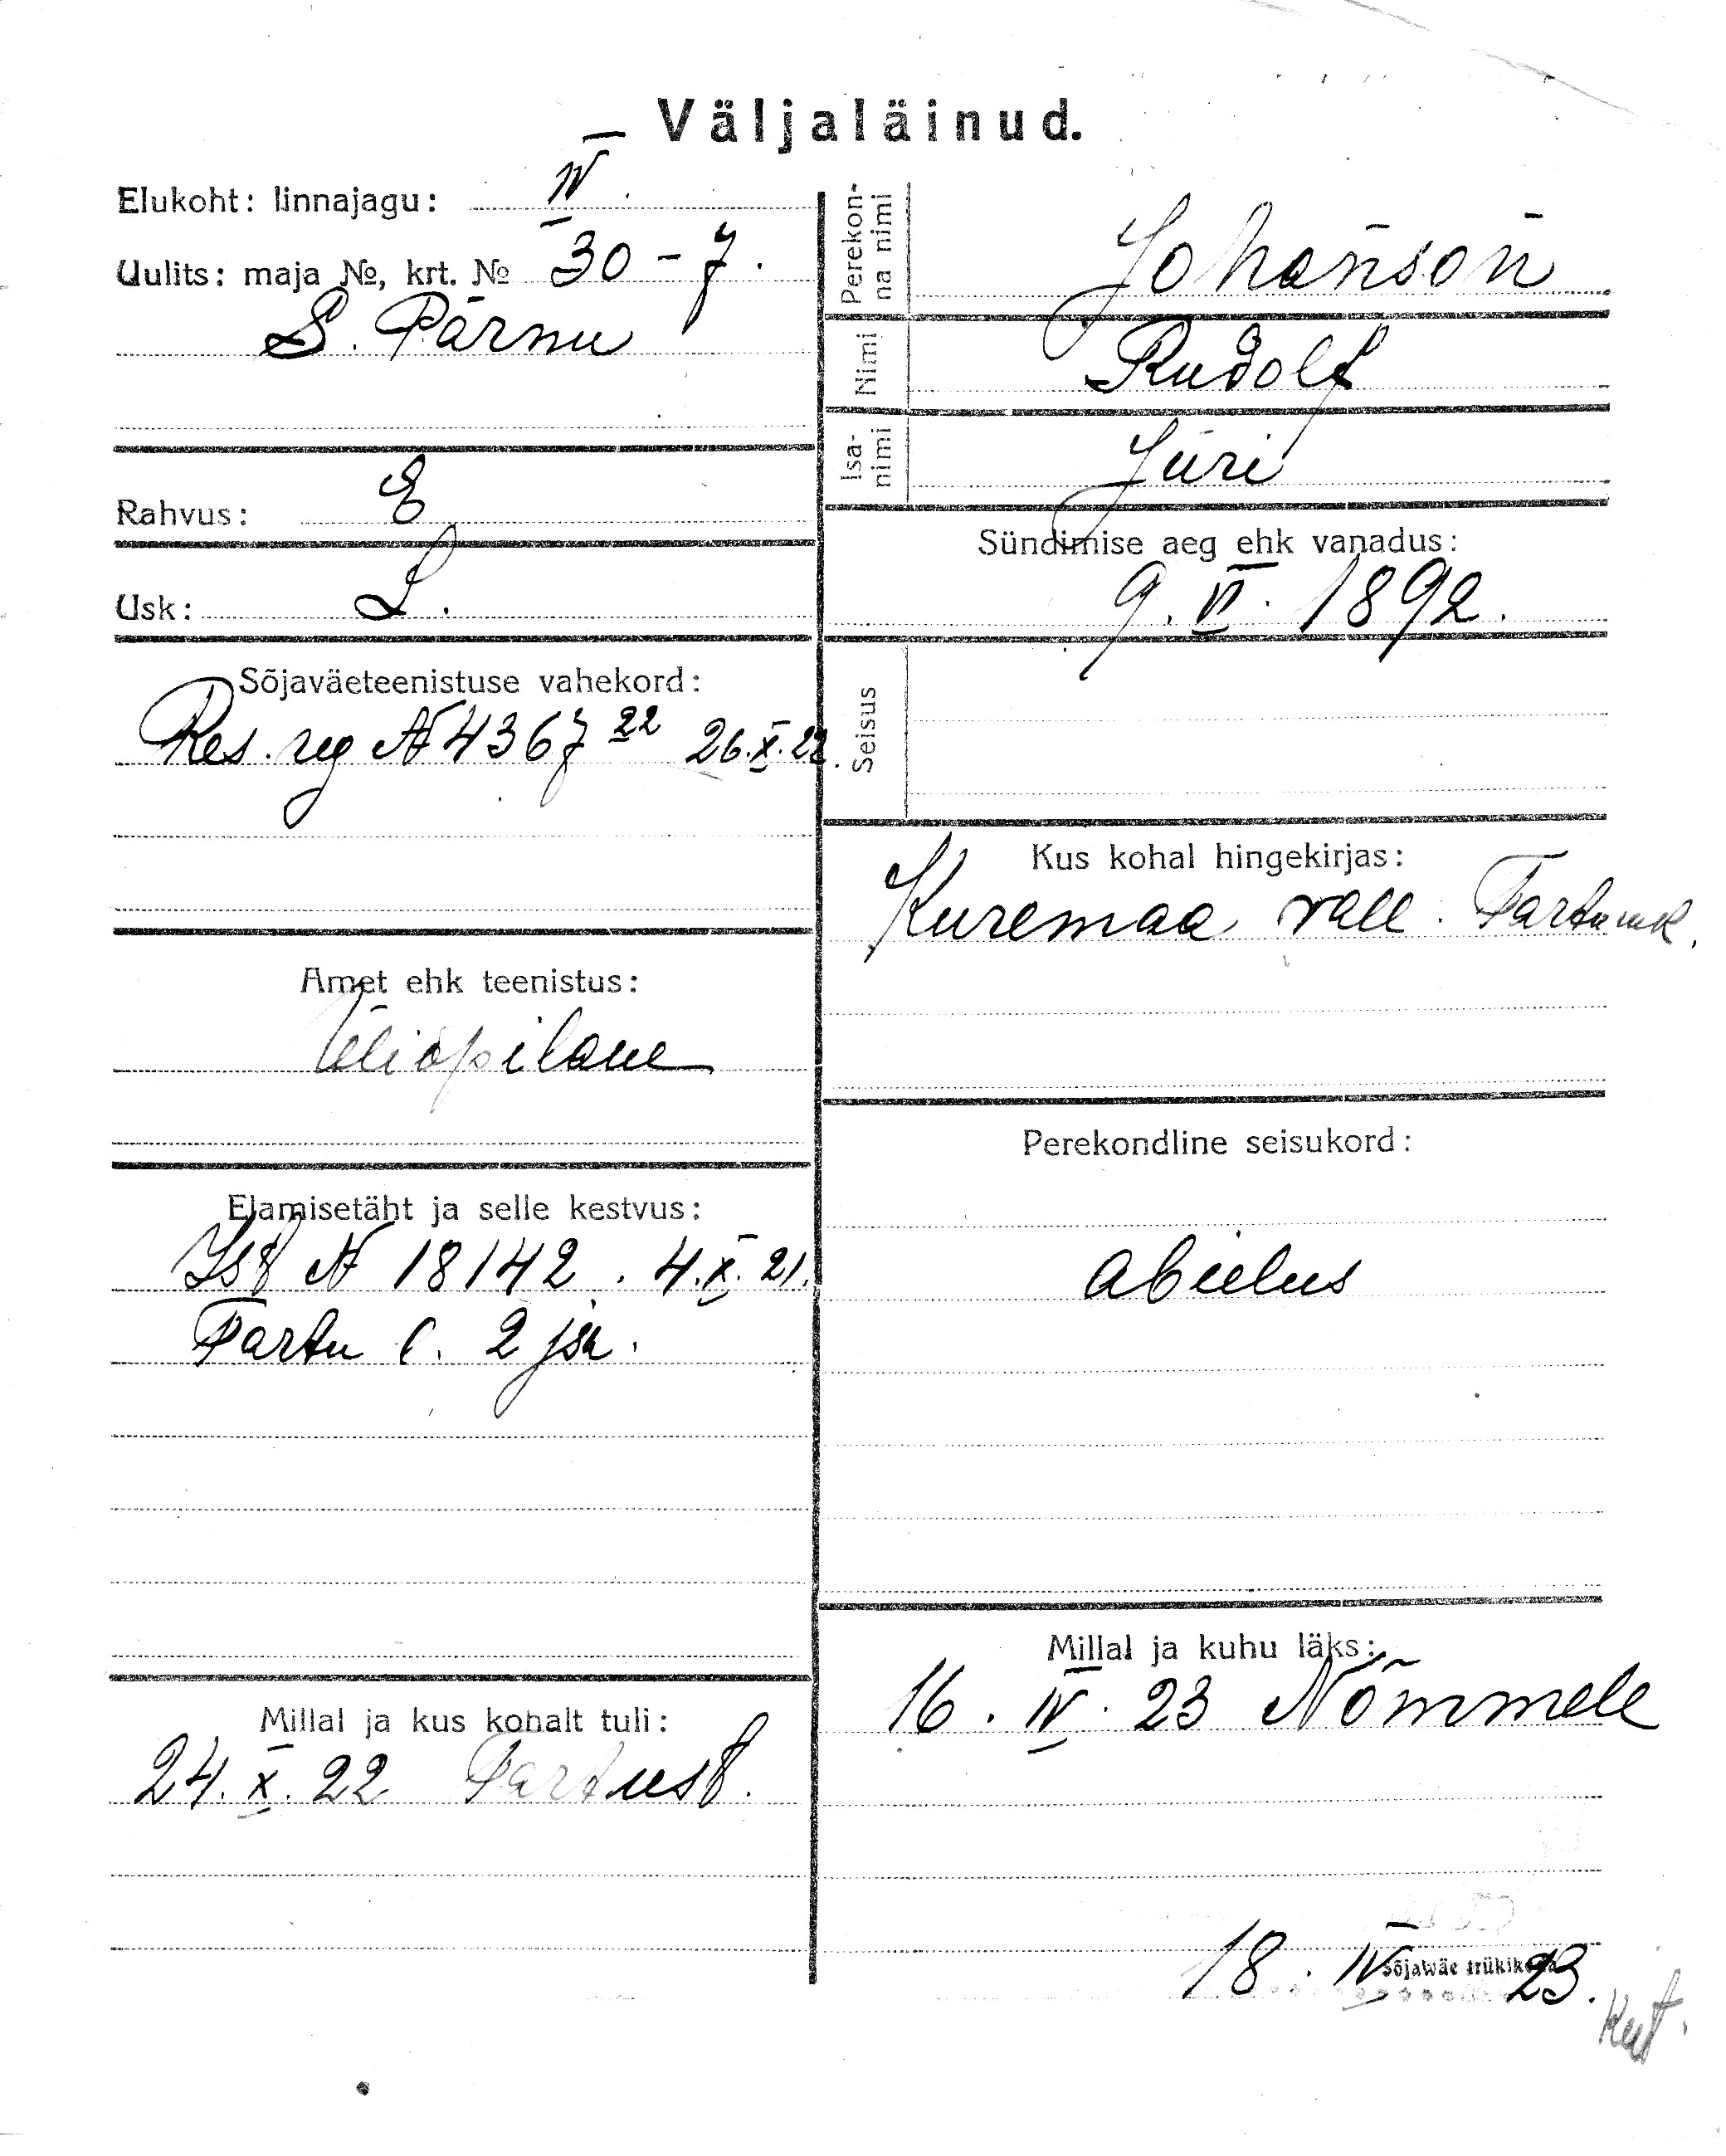 Väljaläinud.
Elukoht: linnajagu: IV.
Uulits: maja №, krt. № 30-7.
S. Pärnu
Rahvus: E
Usk: L.
Sõjaväeteenistuse vahekord:
Res. reg № 4367 22 26.X.22.
Amet ehk teenistus:
Üliõpilane
Elamisetäht ja selle kestvus:
Ist № 18142. 4.X.21.
Tartu l. 2 jsk.
Millal ja kus kohalt tuli:
24.X.22 Tartust.
Perekon-
na nimi
Johanson
Nimi
Rudolf
Isa-
nimi
Jüri
Sündimise aeg ehk vanadus:
9.VI.1892.
Seisus
Kus kohal hingekirjas:
Kuremaa vall. Tartumk.
Perekondline seisukord:
abielus
Millal ja kuhu läks:
16.IV.23 Nõmmele
18.IV 23.
Sõjawäe trükikoda